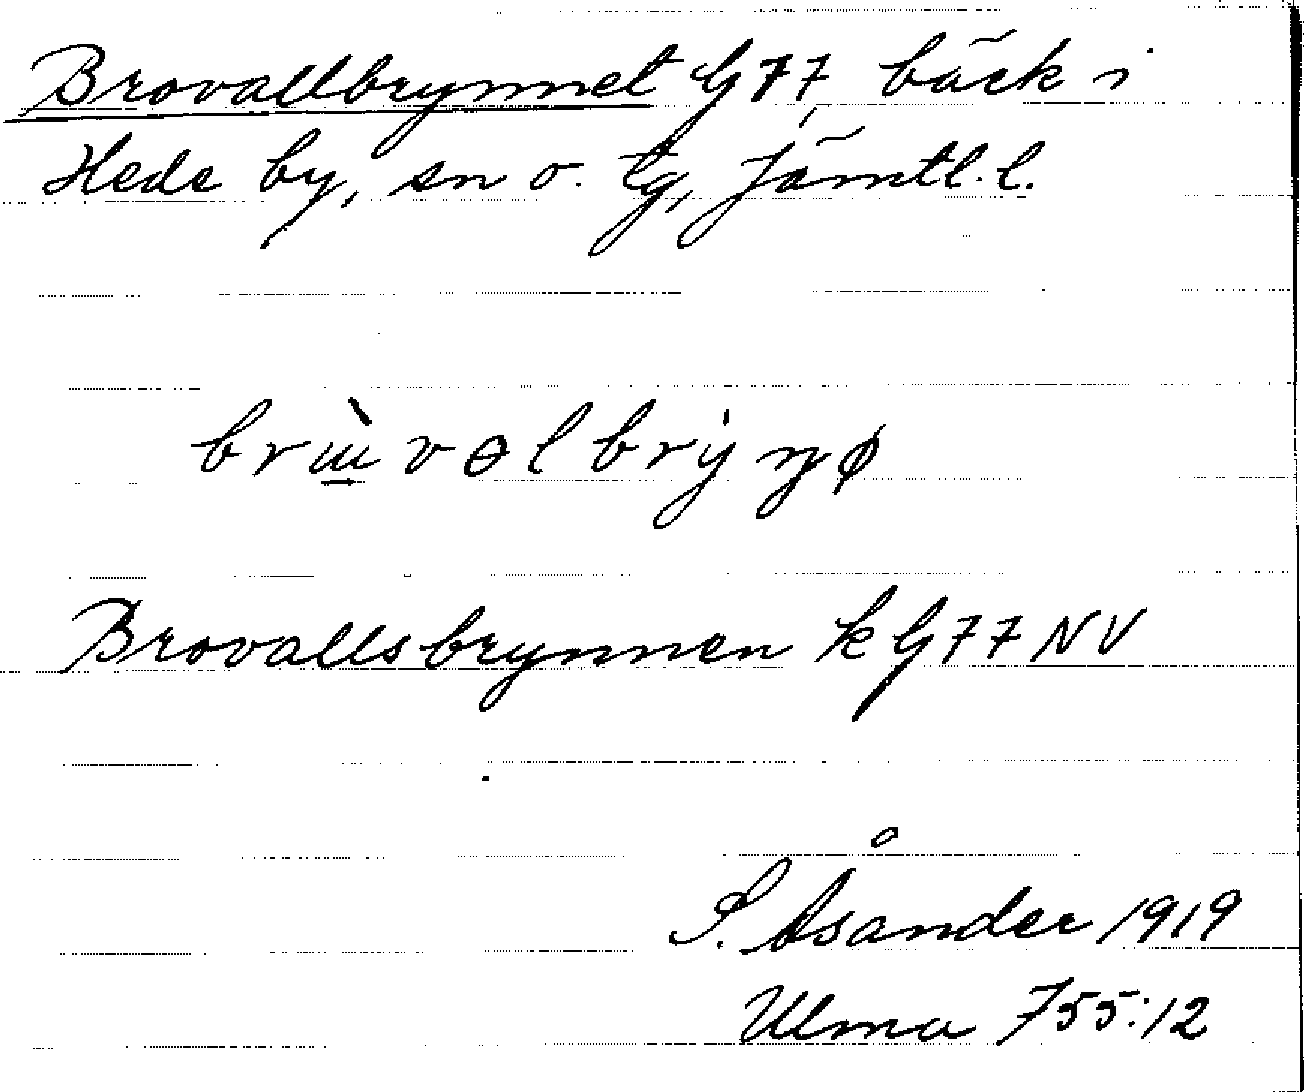 Brovallbrynnet G77, bäck i
Hede by, sn o. tg, Jämtl. l.
Brovallsbrynnen k G77 NV
S. Åsander 1919
Ulma 755:12